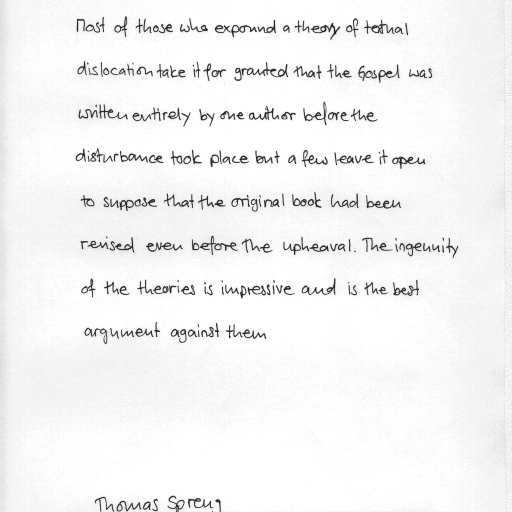 Most of those who expound a theory of textual
dislocation take it for granted that the Gospel was
written entirely by one author before the
disturbance took place but a few leave it open
to suppose that the original book had been
revised even before the upheaval. The ingenuity
of the theories is impressive and is the best
argument against them
Thomas Spreng